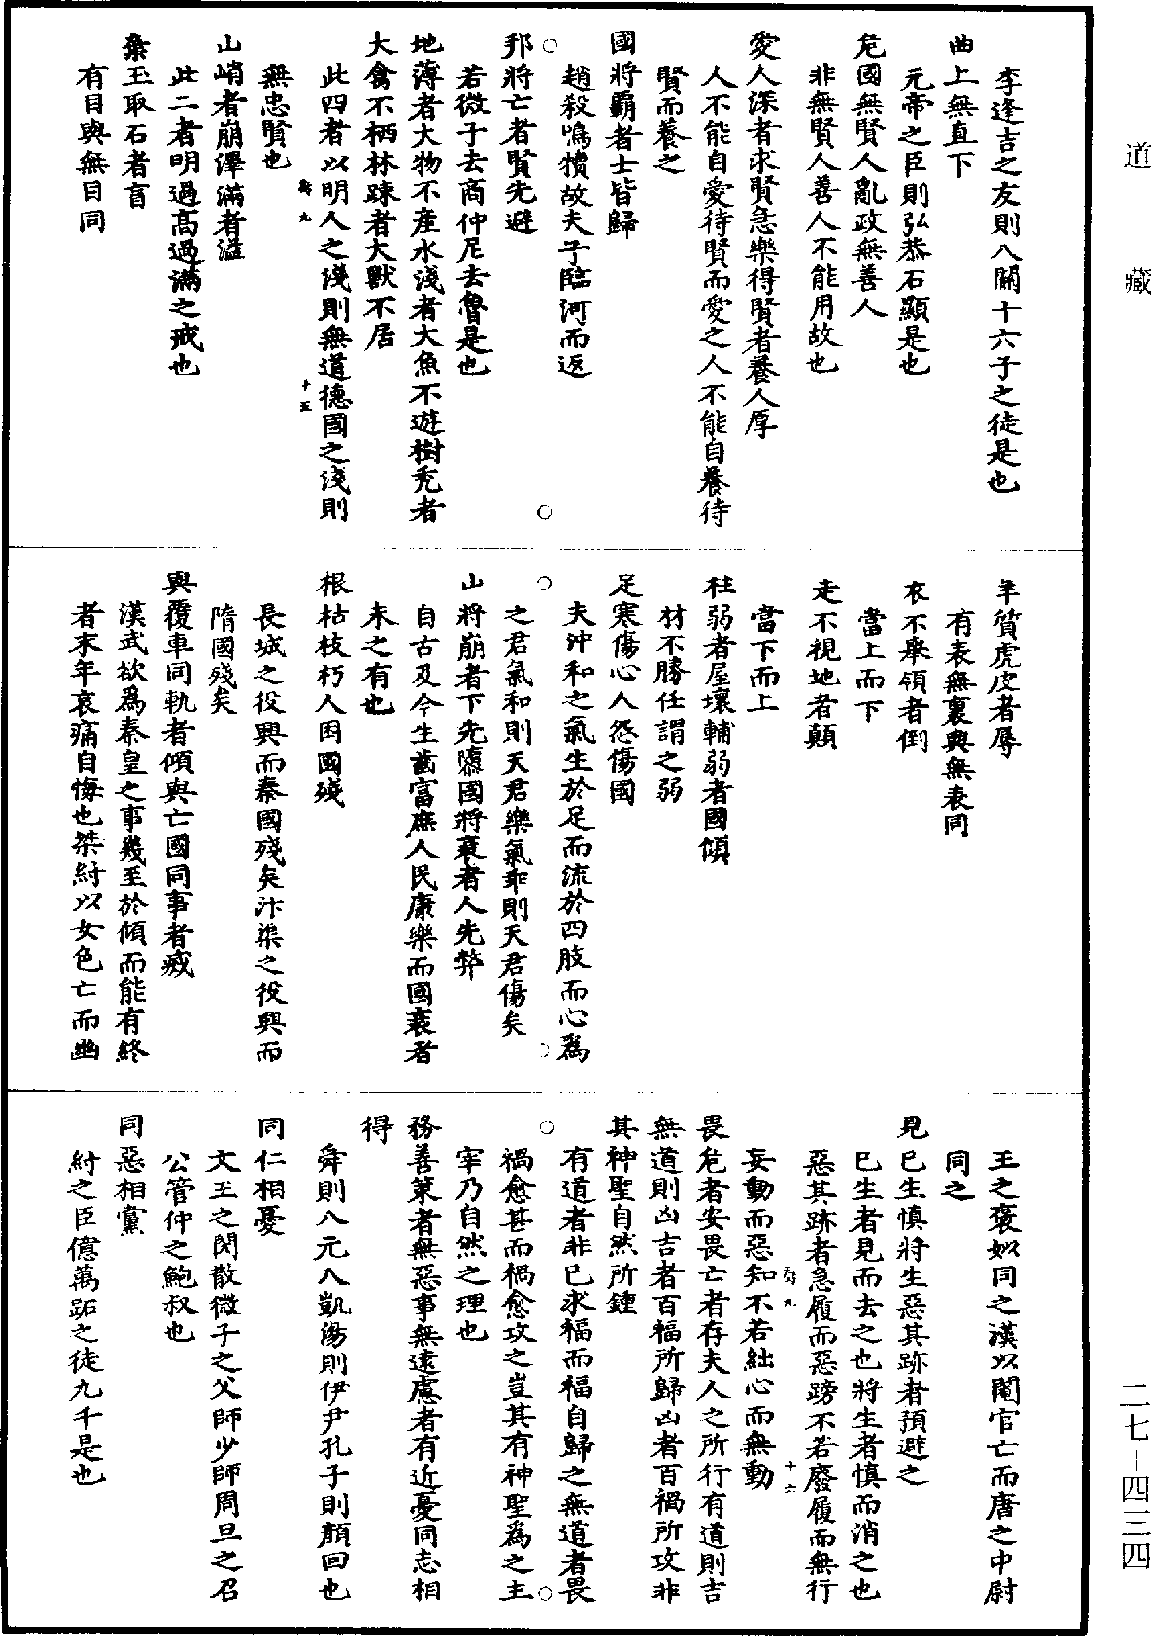 道藏
李逢吉之友則八關十六子之徒是也
曲上無直下
元帝之臣則弘恭石顯是也
危國無賢人亂政無善人
非無賢人善人不能用故也
愛人深者求賢急樂得賢者養人厚
人不能自愛待賢而愛之人不能自養待
賢而養之
國將霸者士皆歸
趙殺鳴犢故夫子臨河而返
邦將亡者賢先避
若微子去商仲尼去魯是也
地薄者大物不產水淺者大魚不遊樹禿者
大禽不栖林踈者大獸不居
此四者以明人之淺則無道德國之淺則
無忠賢也
山峭者崩澤滿者溢
此二者明過高過滿之戒也
棄玉取石者盲
有目與無目同
羊質虎皮者辱
有表無裏與無表同
衣不舉領者倒
當上而下
走不視地者顛
當下而上
柱弱者屋壞輔弱者國傾
材不勝任謂之弱
足寒傷心人怨傷國
夫沖和之氣生於足而流於四肢而心爲
之君氣和則天君樂氣乖則天君傷矣
山將崩者下先隳國將衰者人先弊
自古及今生齒富庶人民康樂而國衰者
未之有也
根枯枝朽人困國殘
長城之役興而秦國殘矣汴渠之役興而
隋國殘矣
與覆車同軌者傾與亡國同事者滅
漢武欲爲秦皇之事幾至於傾而能有終
者末年哀痛自悔也桀紂以女色亡而幽
王之褒姒同之漢以閹官亡而唐之中尉
同之
見已生慎將生惡其跡者預避之
已生者見而去之也將生者慎而消之也
惡其跡者急履而惡蹐不若廢履而無行
妄動而惡知不若絀心而無動
畏危者安畏亡者存夫人之所行有道則吉
無道則凶吉者百福所歸凶者百禍所攻非
其神聖自然所鍾
有道者非已求福而福自歸之無道者畏
禍愈甚而禍愈攻之豈其有神聖爲之主
宰乃自然之理也
務善策者無惡事無遠慮者有近憂同志相
得
舜則八元八凱湯則伊尹孔子則顏回也
同仁相憂
文王之閎散微子之父師少師周旦之召
公管仲之鮑叔也
同惡相黨
紂之臣億萬跖之徒九千是也
二七－四三四